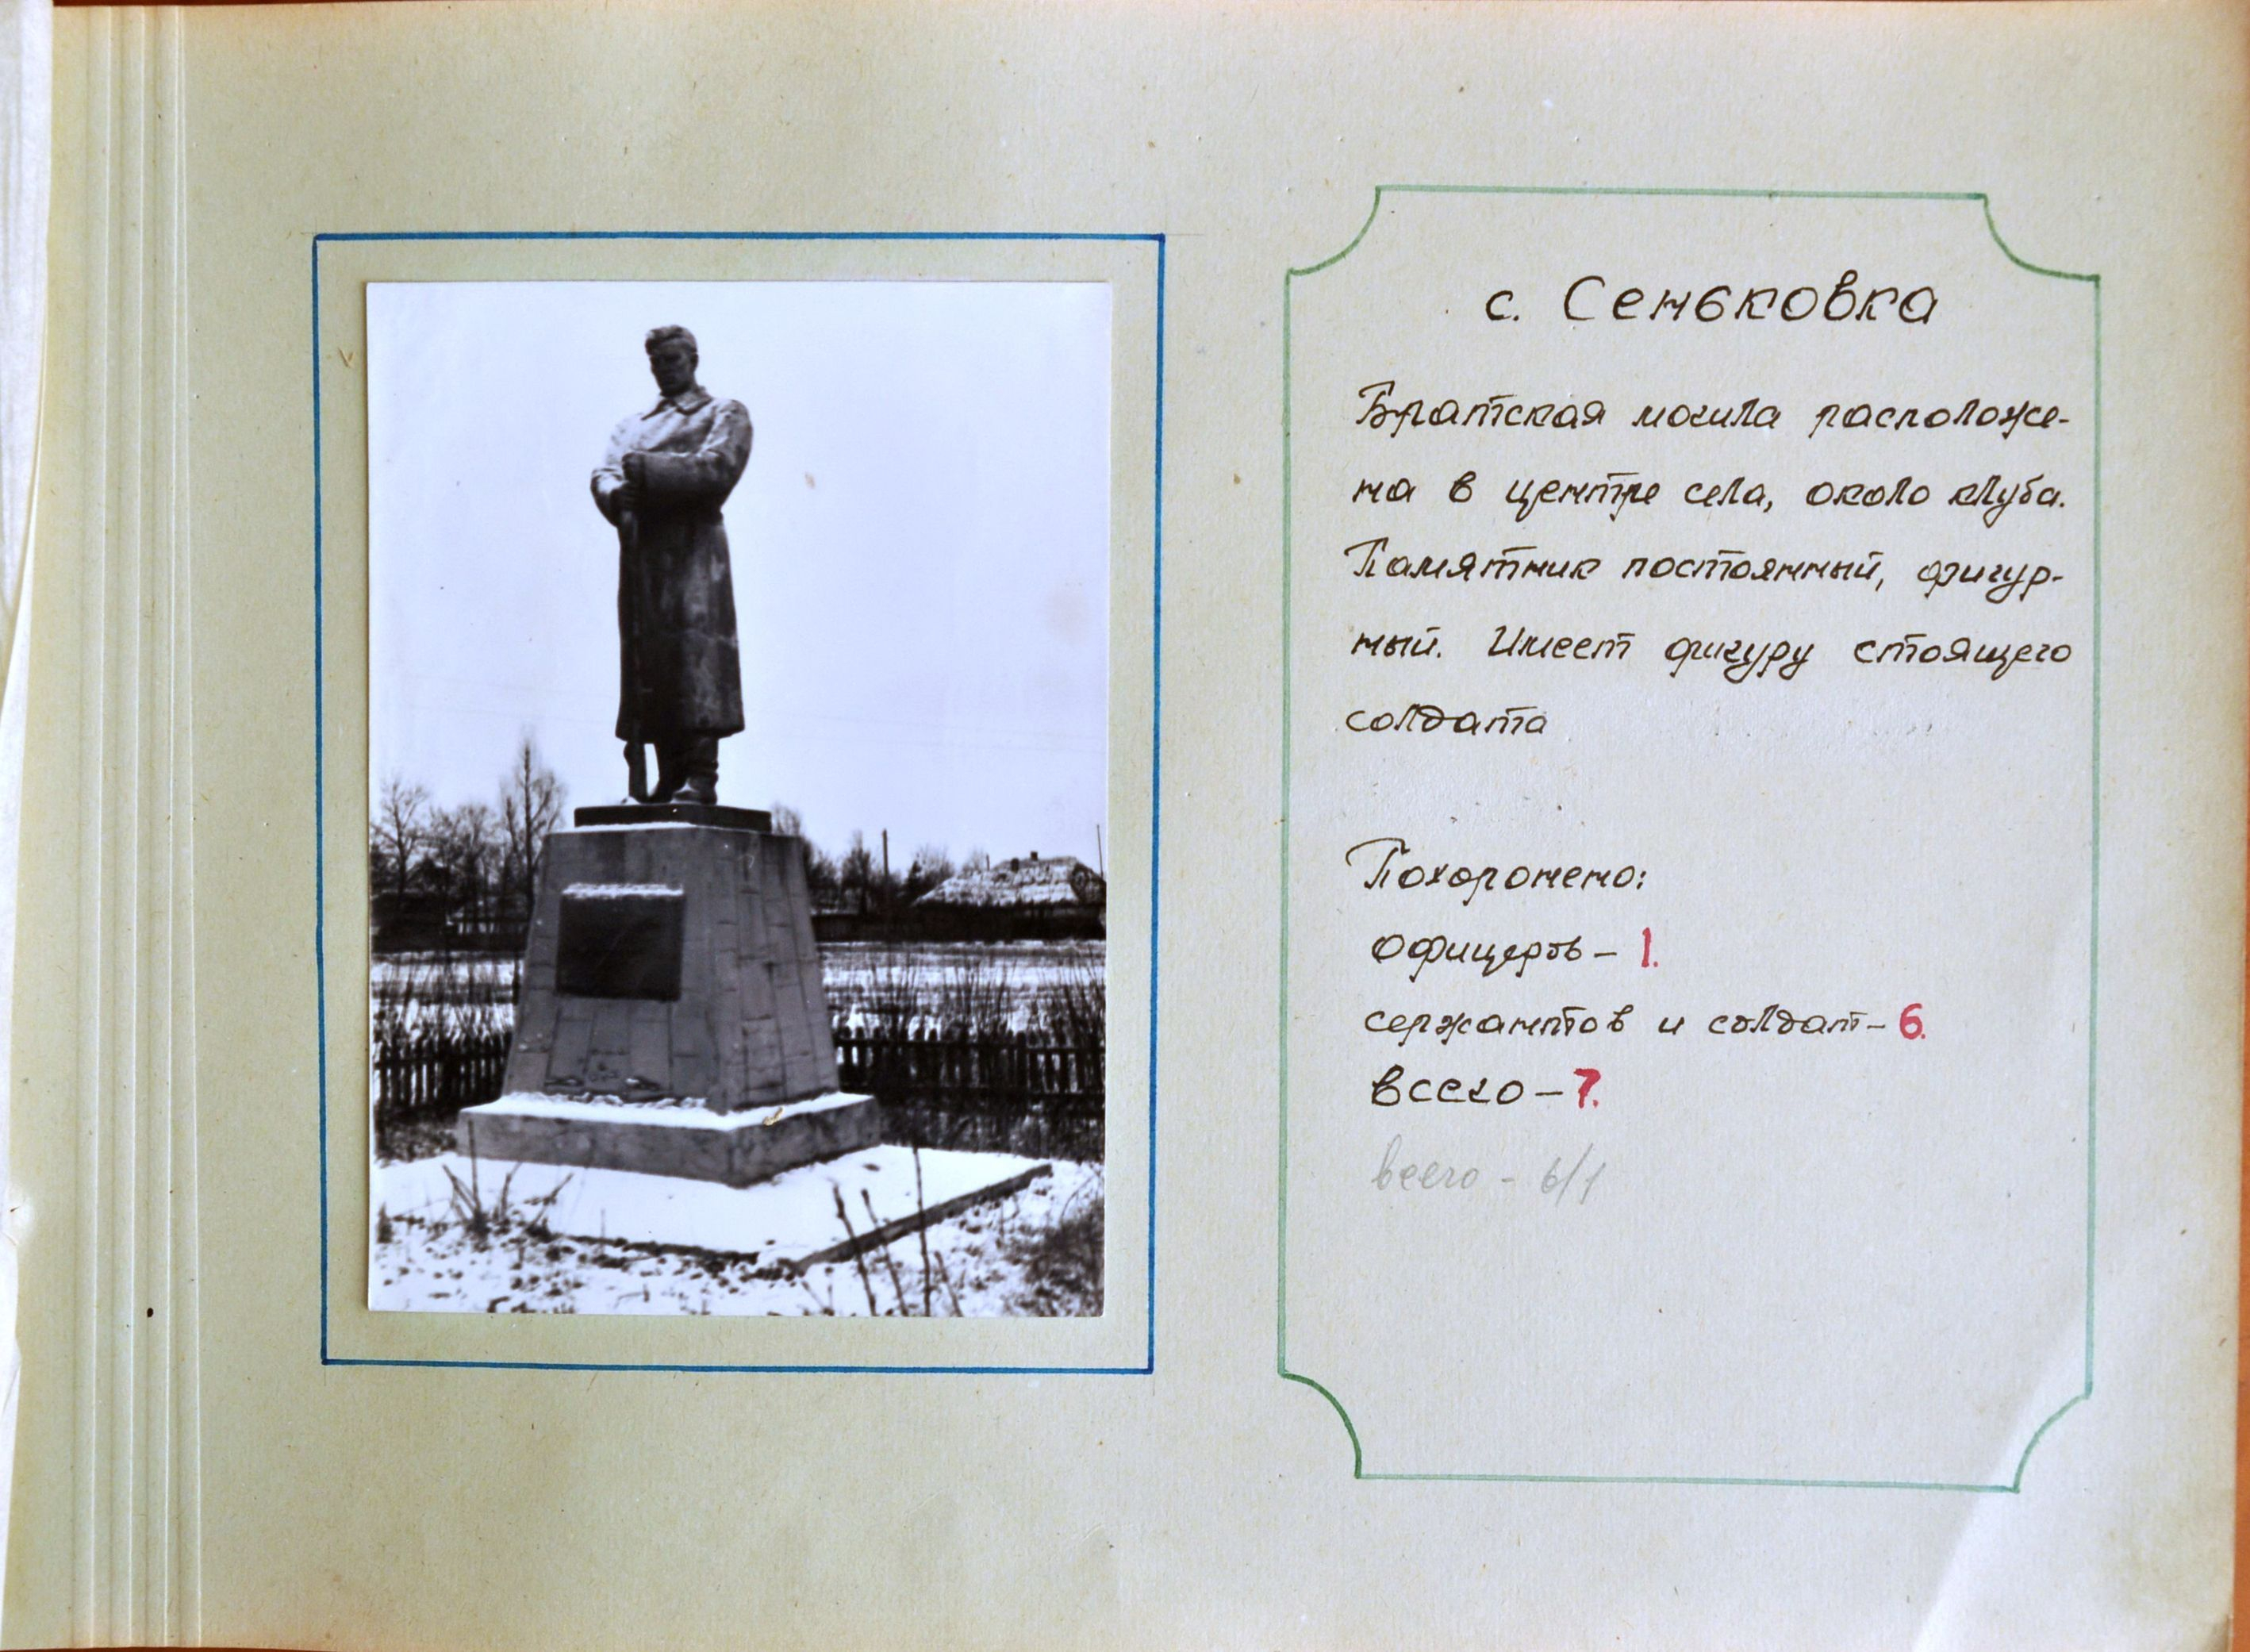 с. Сеньковка
Братская могила расположе-
на в центре села, около клуба.
Памятник постоянный, фигур-
ный. Имеет фигуру стоящего
солдата
Похоронено:
офицеров – 1.
сержантов и солдат – 6.
всего – 7.
всего - 6/1